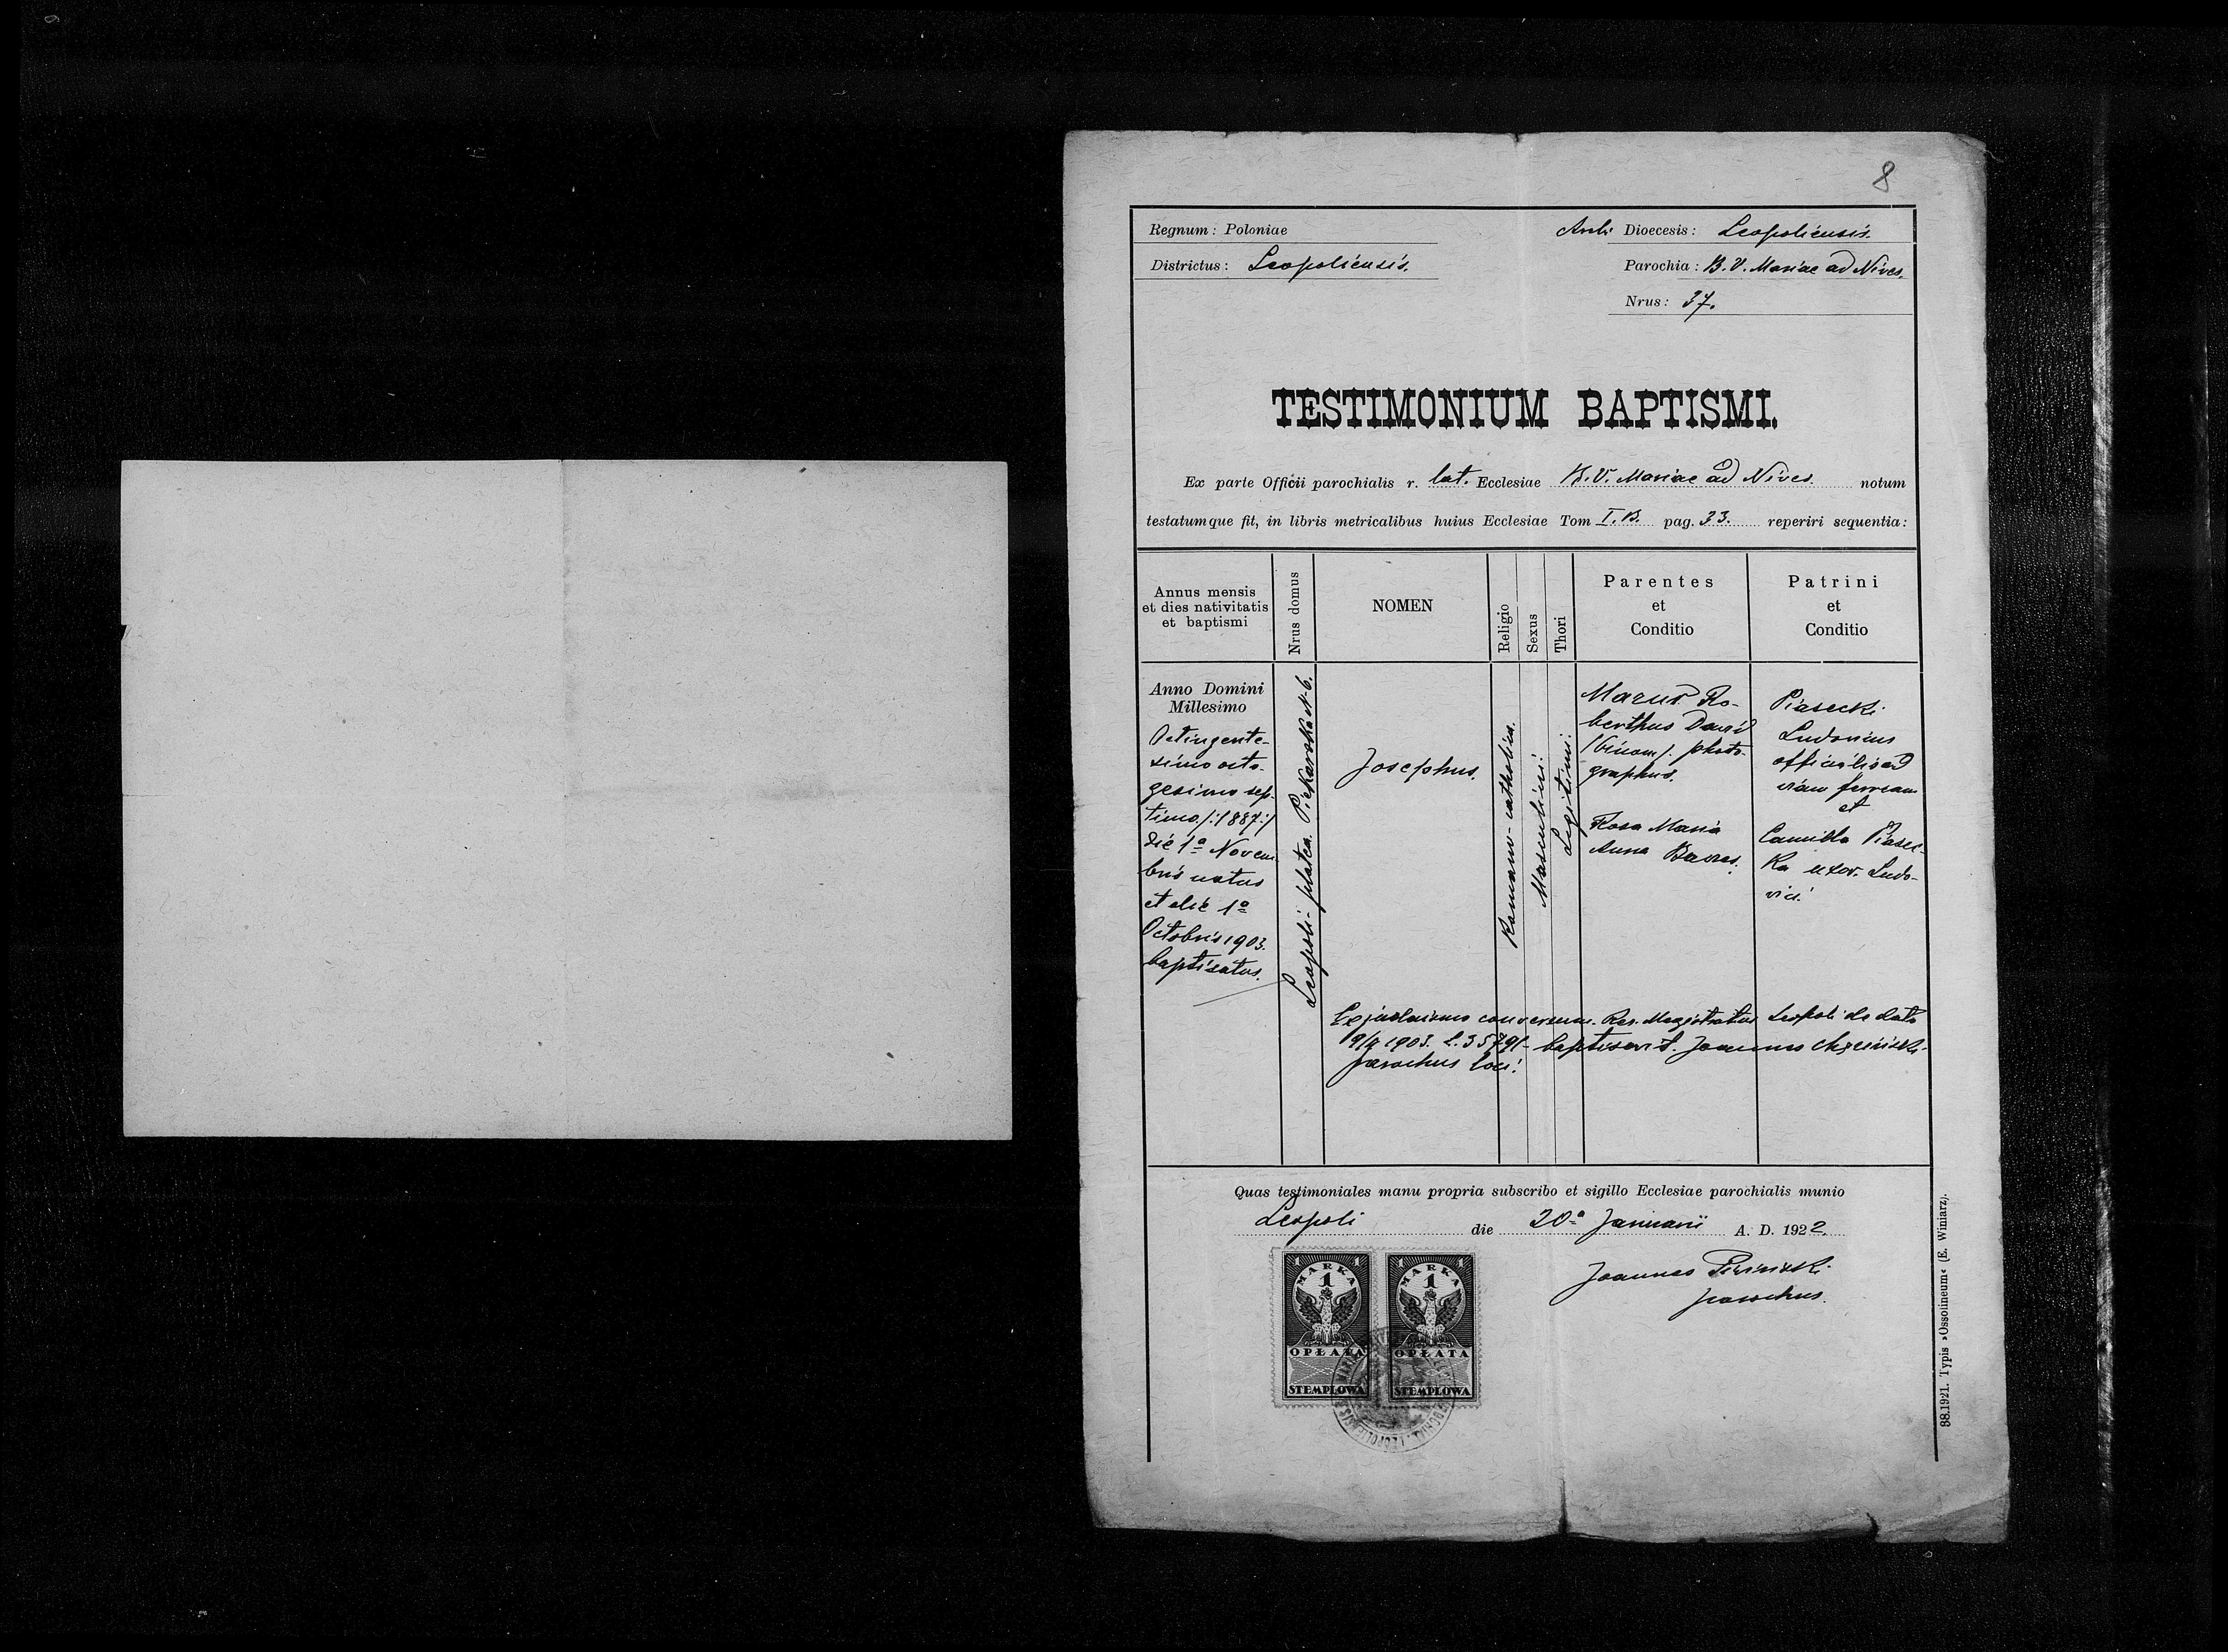 8
Regnum: Poloniae
Archi Dioecesis: Leopoliensis.
Districtus: Leopoliensis.
Parochia: B. V. Mariae ad Nives.
Nrus: 37.
TESTIMONIUM BAPTISMI.
Ex parte Officii parochialis r. lat. Ecclesiae B. V. Mariae ad Nives. notum
testatumque fit, in libris metricalibus huius Ecclesiae Tom I. B. pag. 33. reperiri sequentia:
Annus mensis
et dies nativitatis
et baptismi
Nrus domus
NOMEN
Religio
Sexus
Thori
Parentes
et
Conditio
Patrini
et
Conditio
Anno Domini
Millesimo
Octingente-
simo octo-
gesimo sep-
timo /:1887:/
die 1ª Novem
bris natus
et die 1ª
Octobris 1903.
baptisatus.
Leopoli - platea Piekarska N. 6.
Josephus.
Romano-catholica.
Masculini.
Legitimi.
Marus Ro-
berthus David
/binom/. photo-
graphus.
Rosa Maria
Anna
Piasecki
Ludovicus
officialis ad
viam ferream
et
Camilla Piasec-
ka uxor. Ludo-
vici.
Ex judaismo conversus. Res. Magistratus Leopoli de dato
1903. L. 35791 - baptisavit. Joannes
parochus loci.
Quas testimoniales manu propria subscribo et sigillo Ecclesiae parochialis munio
Leopoli die 20ª Januarii A. D. 1922.
Joannes
parochus.
1 MARKA 1
1
OPŁATA
STEMPLOWA
1 MARKA 1
1
OPŁATA
STEMPLOWA
88.1921. Typis »Ossolineum« (E. Winiarz).